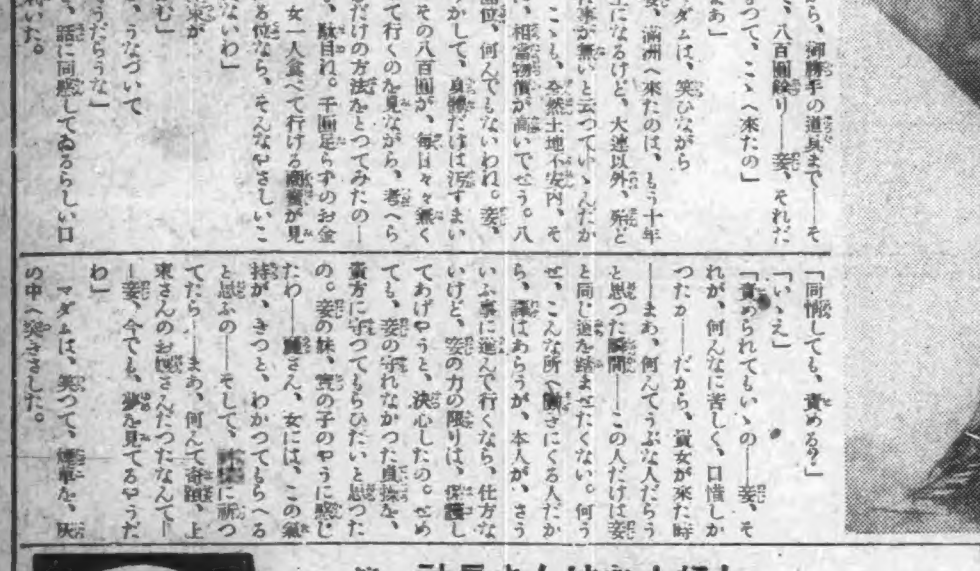 から、御勝手の道具まで――そ
、八百圓餘り――妾、それだ
つて、こゝへ来たの」
まあ」
ダムは、笑ひながら
妾、滿洲へ来たのは、もう十年
上になるけど、大連以外、殆ど
た事が無いと云つていゝんだか
こゝも、全然土地不安内、そ
、相當物價が高いでせう。八
圓位、何んでもないわね。妾、
うかして、身體だけは汚すまい
その八百圓が、毎日々々無く
て行くのを見ながら、考へら
るだけの方法をとつてみたの―
、駄目ね。千圓足らずのお金
女一人食べて行ける商賣が見
ないわ」
る位なら、そんなやさしいこ
来が
む」
、うなづいて
うたらうな」
、話に同感してゐるらしい口
「同情しても、責める?」
「いゝえ」
「責められてもいゝの――妾、そ
れが、何んなに苦しく、口惜しか
つたか――だから、貴女が来た時
――まあ、何んてうぶな人だらう
と思つた瞬間――この人だけは妾
と同じ道を踏ませたくない。何う
せ、こんな所へ働きにくる人だか
ら、譯はあらうが、本人が、さう
いふ事に進んで行くなら、仕方な
いけど、妾の力の限りは、保護し
てあげやうと、決心したの。せめ
ても、妾の守れなかつた貞操を、
貴方に守つてもらひたいと思つた
の。妾の妹、妾の子のやうに感じ
たわ――麗さん、女には、この氣
持が、きつと、わかつてもらへる
と思ふの――そして、に祈つ
てたら――まあ、何んて奇蹟、上
東さんのお さんだつたなんて―
―妾、今でも、夢を見てるやうだ
わ」
マダムは、笑つて、煙草を、灰
の中へ突きさした。